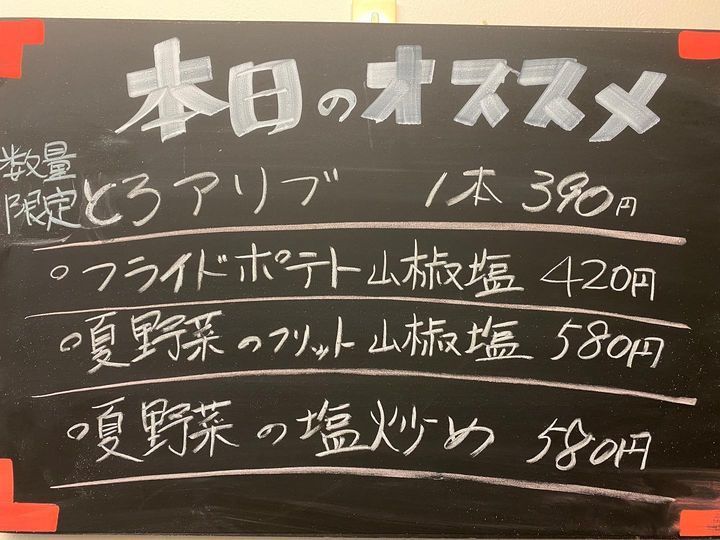 本日のオススメ
数量
限定
とろアリブ 1本 390円
○フライドポテト山椒塩 420円
○夏野菜のフリット山椒塩 580円
○夏野菜の塩炒め 580円